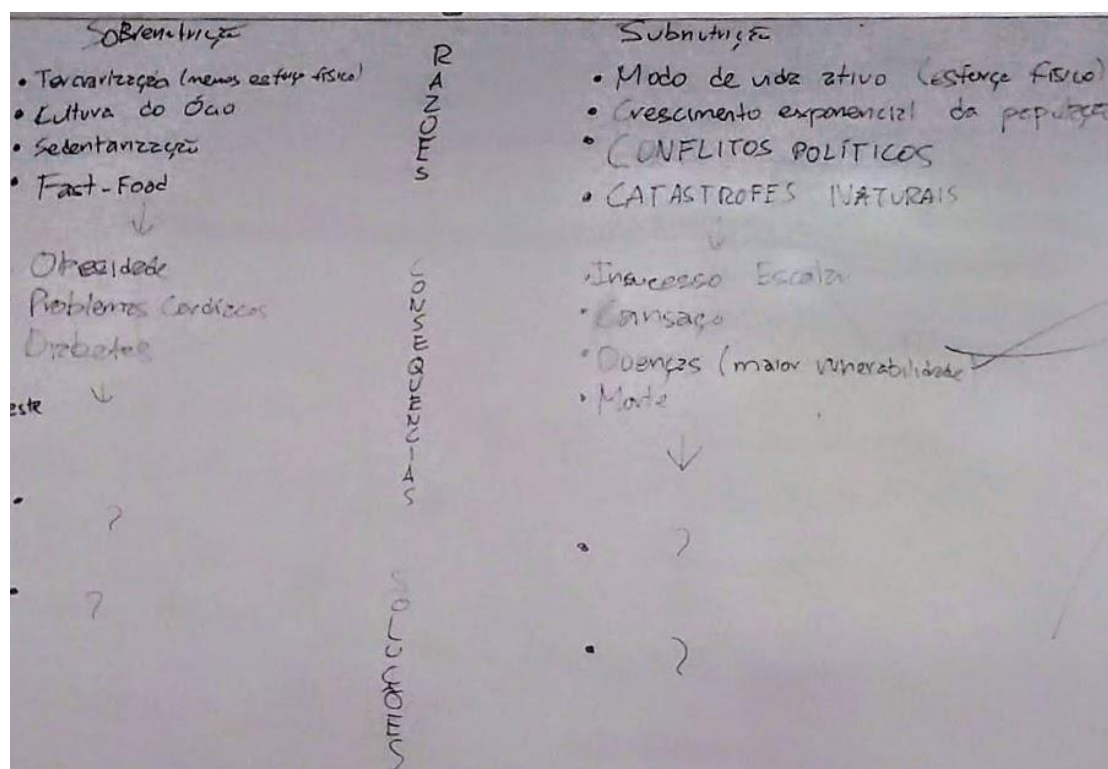 Sobrenutrição
• Terciarização (menos esforço físico)
• Cultura do Ócio
• Sedentarização
• Fast-Food
↓
Obesidade
Problemas Cardíacos
Diabetes
↓
este
• ?
• ?
RAZÕES
CONSEQUENCIAS
SOLUÇÕES
Subnutrição
• Modo de vida ativo (esforço físico)
• Crescimento exponencial da população
• CONFLITOS POLÍTICOS
• CATASTROFES NATURAIS
↓
• Insucesso Escolar
• Cansaço
• Doenças (maior vulnerabilidade
• Morte
↓
• ?
• ?